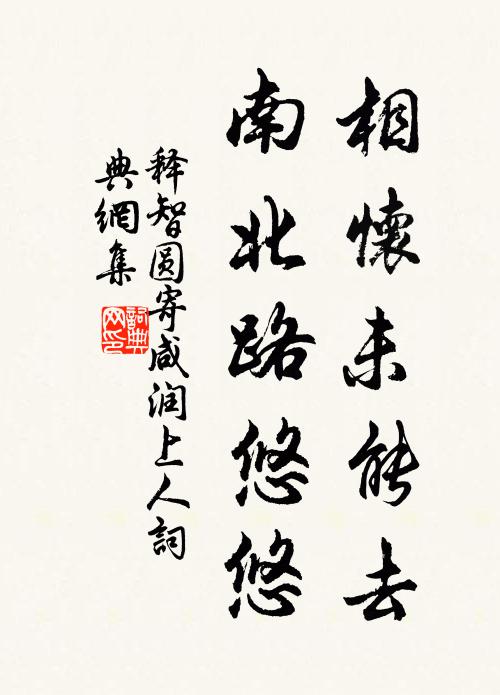 相懷未能去
南北路悠悠
释智圆寄咸润上人詞
典網集
詞典
网印